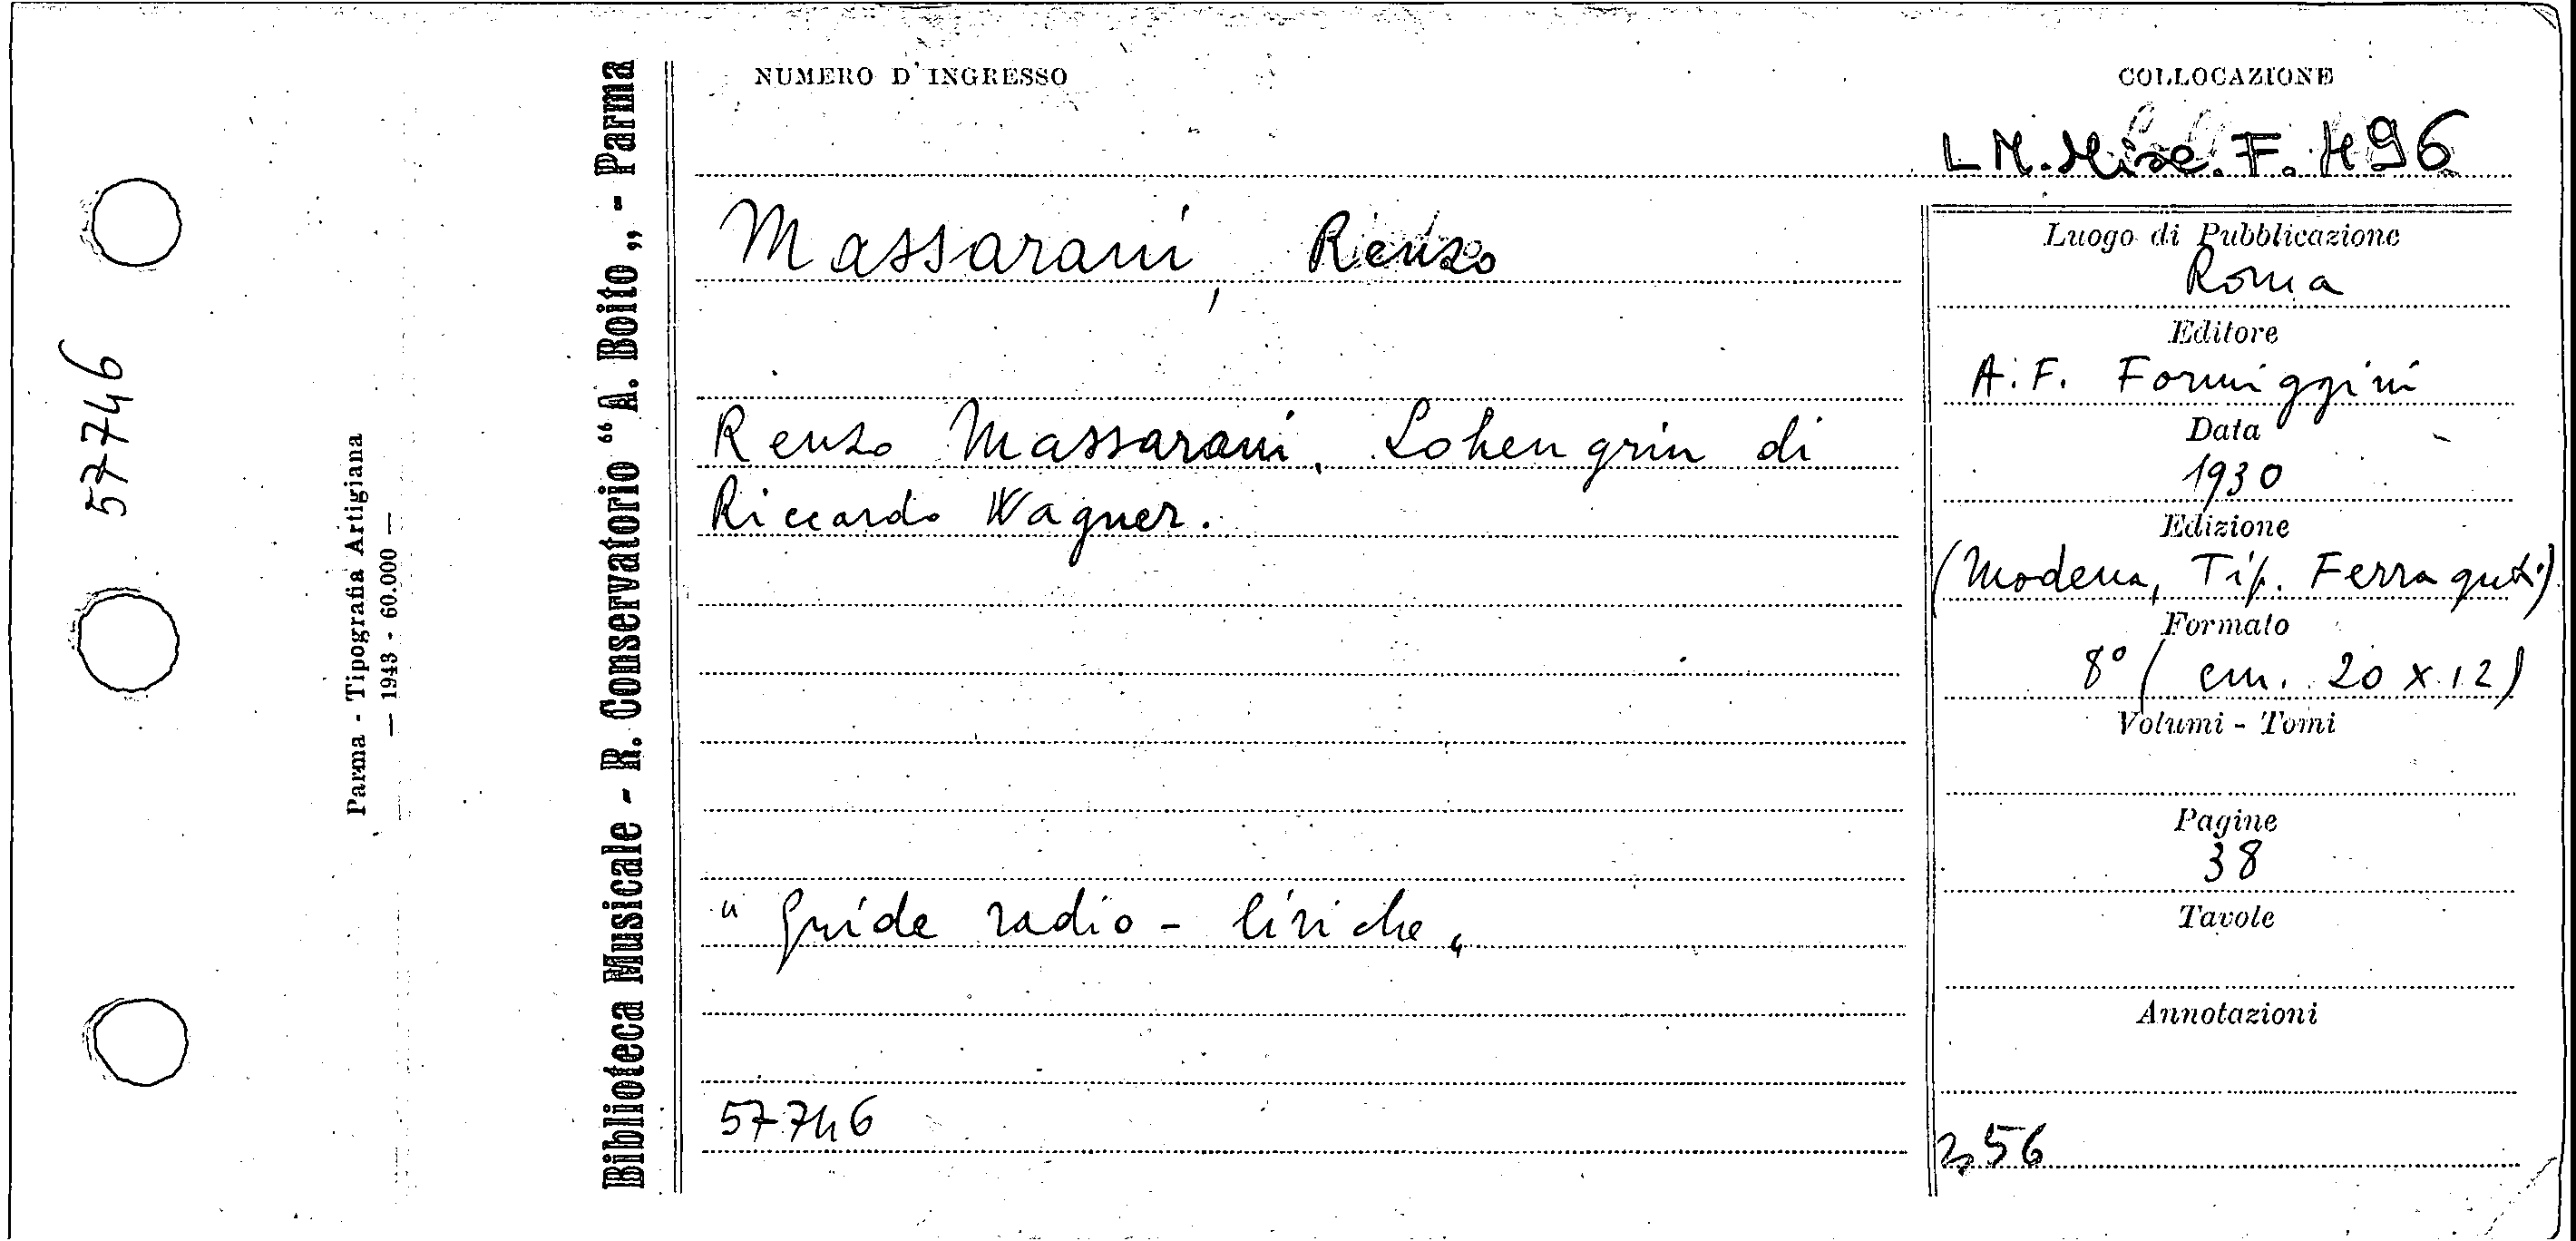 57746
Parma - Tipografia Artigiana
— 1943 - 60.000 —
Biblioteca Musicale - R. Conservatorio “ A. Boito „ - Parma
NUMERO D'INGRESSO
COLLOCAZIONE
LM.Misc.F.496
Massarani, Renzo
Renzo Massarani. Lohengrin di
Riccardo Wagner.
" Guide radio - liriche „
57746
Luogo di Pubblicazione
Roma
Editore
A.F. Formiggini
Data
1930
Edizione
(Modena, Tip. Ferraguti)
Formato
8° ( cm. 20 x 12)
Volumi - Tomi
Pagine
38
Tavole
Annotazioni
256